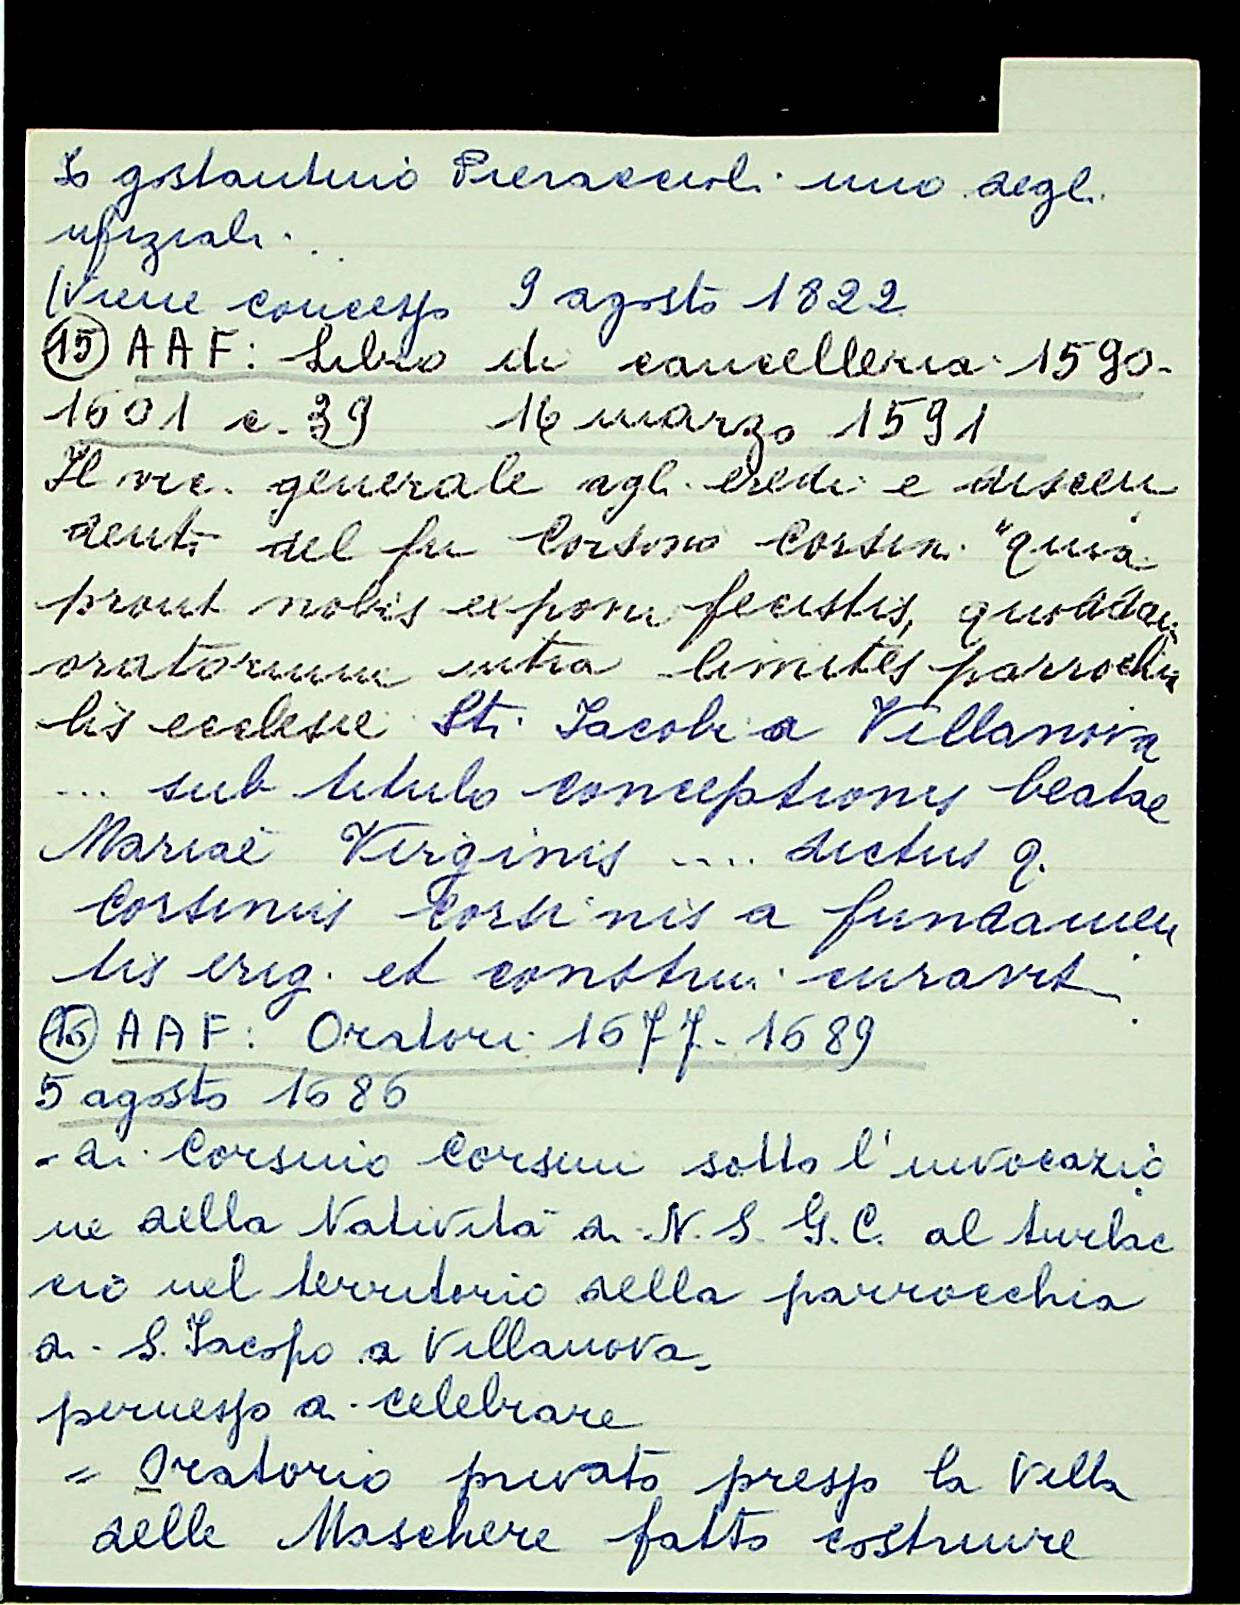 Io gostantino Pieraccioli uno degli
ufiziali.
(Viene concesso 9 agosto 1822
(15) AAF: Libro di cancelleria 1590-
1601 c. 39 16 marzo 1591
Il vic. generale agli eredi e discen
denti del fu Corsino Corsini "quia
prout nobis exponi fecistis, quoddam
oratorium intra limites parrochia
lis ecclesie Sti Jacobi a Villanova
... sub titulo conceptionis beatae
Mariae Virginis .... dictus q.
Corsinus Corsinis a fundamen
tis erig. et construi curavit
(16) AAF: Oratori 1677-1689
5 agosto 1686
- di Corsino Corsini sotto l'invocazio
ne della Natività di N. S. G. C. al turlac
cio nel territorio della parrocchia
di S. Jacopo a Villanova,
permesso di celebrare
= Oratorio privato presso la Villa
delle Maschere fatto costruire